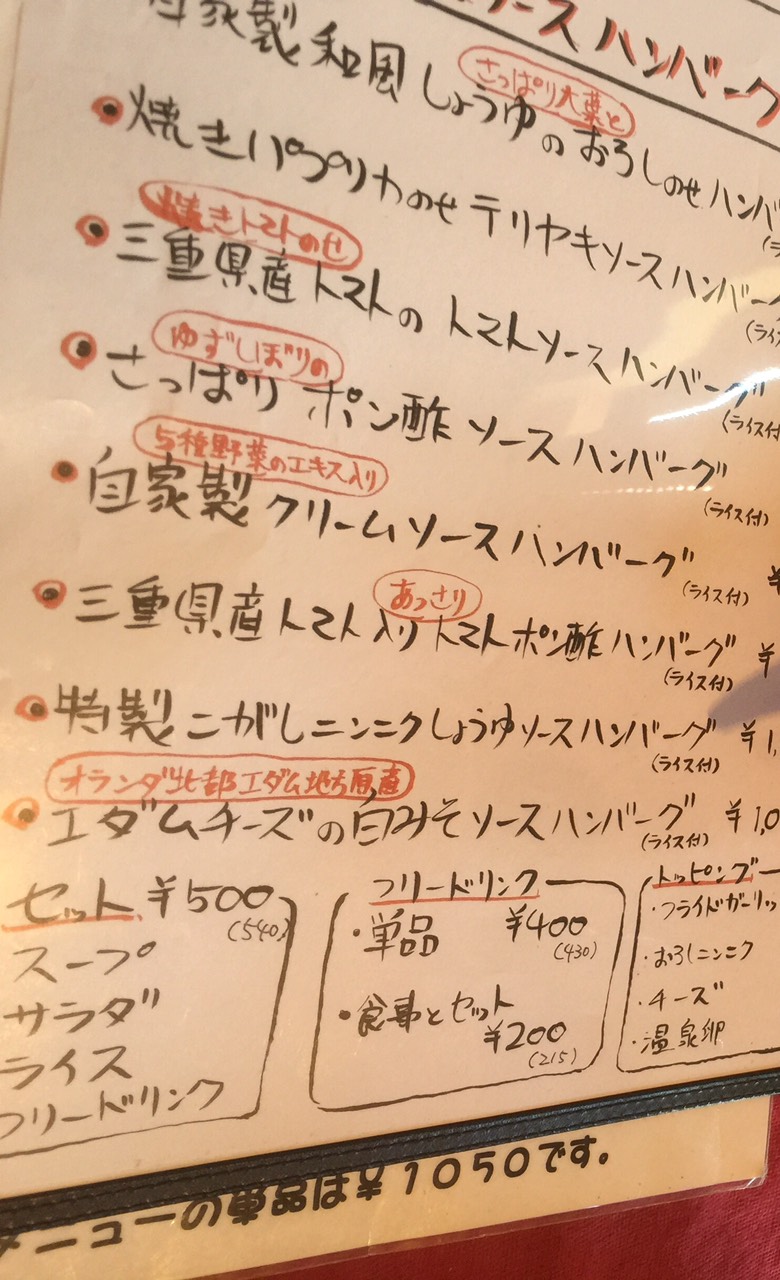 ソースハンバーグ
さっぱり大葉と
自家製和風しょうゆのおろしのせハンバ
焼きパプリカのせテリヤキソースハンバーグ
(ライス
焼きトマトのせ
三重県産トマトのトマトソースハンバーグ
(ライス付)
ゆずしぼりの
さっぱりポン酢ソースハンバーグ
(ライス付)
5種野菜のエキス入り
自家製クリームソースハンバーグ
(ライス付) ¥
あっさり
三重県産トマト入りトマトポン酢ハンバーグ ¥
(ライス付)
特製こがしニンニクしょうゆソースハンバーグ ¥1,
(ライス付)
オランダ北部エダム地方原産
エダムチーズの白みそソースハンバーグ ¥1,0
(ライス付)
セット ¥500
(540)
スープ
サラダ
ライス
フリードリンク
フリードリンク
・単品 ¥400
(430)
・食事とセット
¥200
(215)
トッピング
・フライドガーリッ
・おろしニンニク
・チーズ
・温泉卵
メニューの単品は¥1050です。